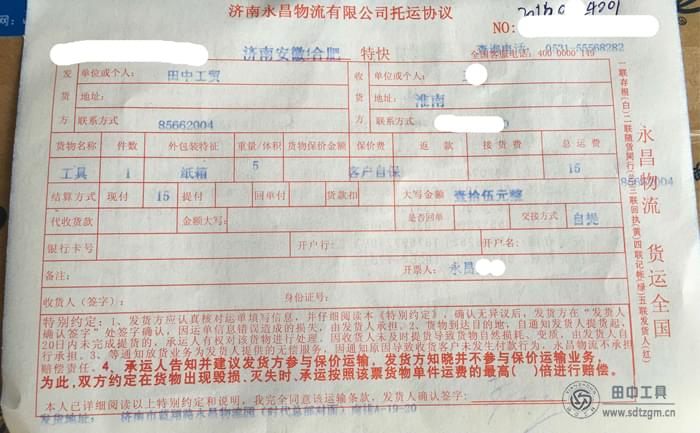 济南永昌物流有限公司托运协议
NO:
济南安徽/合肥 特快 查询电话: 0531-55568282
全国客服电话: 400 0000 149
发货方 单位或个人: 田中工贸 收货方 单位或个人:
地址: 地址: 淮南
联系方式 85662004 联系方式
货物名称 件数 外包装特征 重量/体积 货物保价金额 保价费 返款 接货费 总运费
工具 1 纸箱 5 客户自保 15
结算方式 现付 15 提付 回单付 货款扣 大写金额 壹拾伍元整
代收货款 金额大写: 是否回单 交接方式 自提
银行卡号 开户行: 开户名:
备注: 开票人: 永昌
收货人(签字): 身份证号:
特别约定:1、发货方应认真核对运单填写信息,并仔细阅读本《特别约定》,确认无异议后,发货方在“发货人
确认签字”处签字确认,因运单信息错误造成的损失,由发货方承担。2、货物到达目的地,自通知发货人提货起,
20日内未完成提货的,承运人有权对该货物进行处理。因收货人未及时提货导致货物自然损耗、变质,由发货人自
行承担。3、等通知放货业务为发货人提供的无偿服务,因通知原因导致收货客户未发生付款行为,永昌物流不承担
赔偿责任。4、承运人告知并建议发货方参与保价运输,发货方知晓并不参与保价运输业务,
为此,双方约定在货物出现毁损、灭失时,承运按照该票货物单件运费的最高( )倍进行赔偿。
本人已仔细阅读以上特别约定和说明,我完全同意该运输条款,发货人确认签字:
发货地址: 济南市
永昌物流园(时代总部对面) A-19-20
一联存根(白)二联随货同行
三联回执(黄)四联记帐(绿)五联发货人(红)
永昌物流 货运全国
田中工具
www.sdtzgm.cn